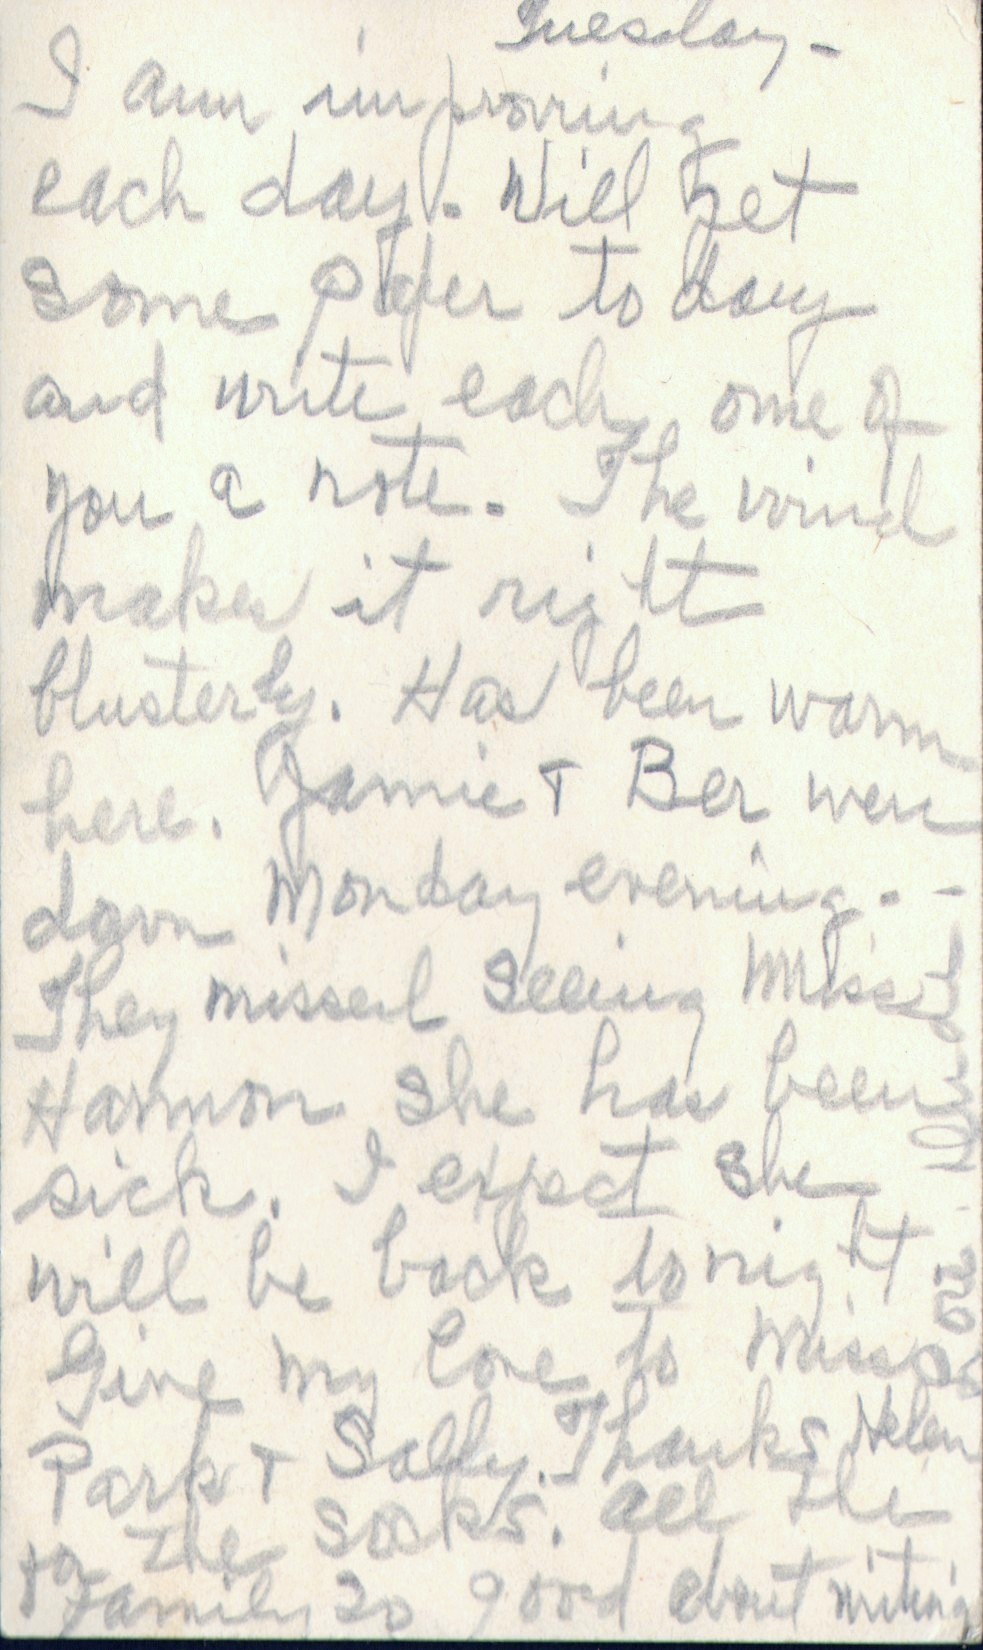 Tuesday -
I am improving
each day. Will get
some paper today
and write each one of
you a note. The wind
makes it right
blusterly. Has been warm
here. Jamie + Ber were
down Monday evening. -
They missed seeing Miss
Harmon she has been
sick. I expect she
will be back tonight
Give my love to Miss
Park + Sally. Thanks Helen
for the socks. All the
family so good about writing